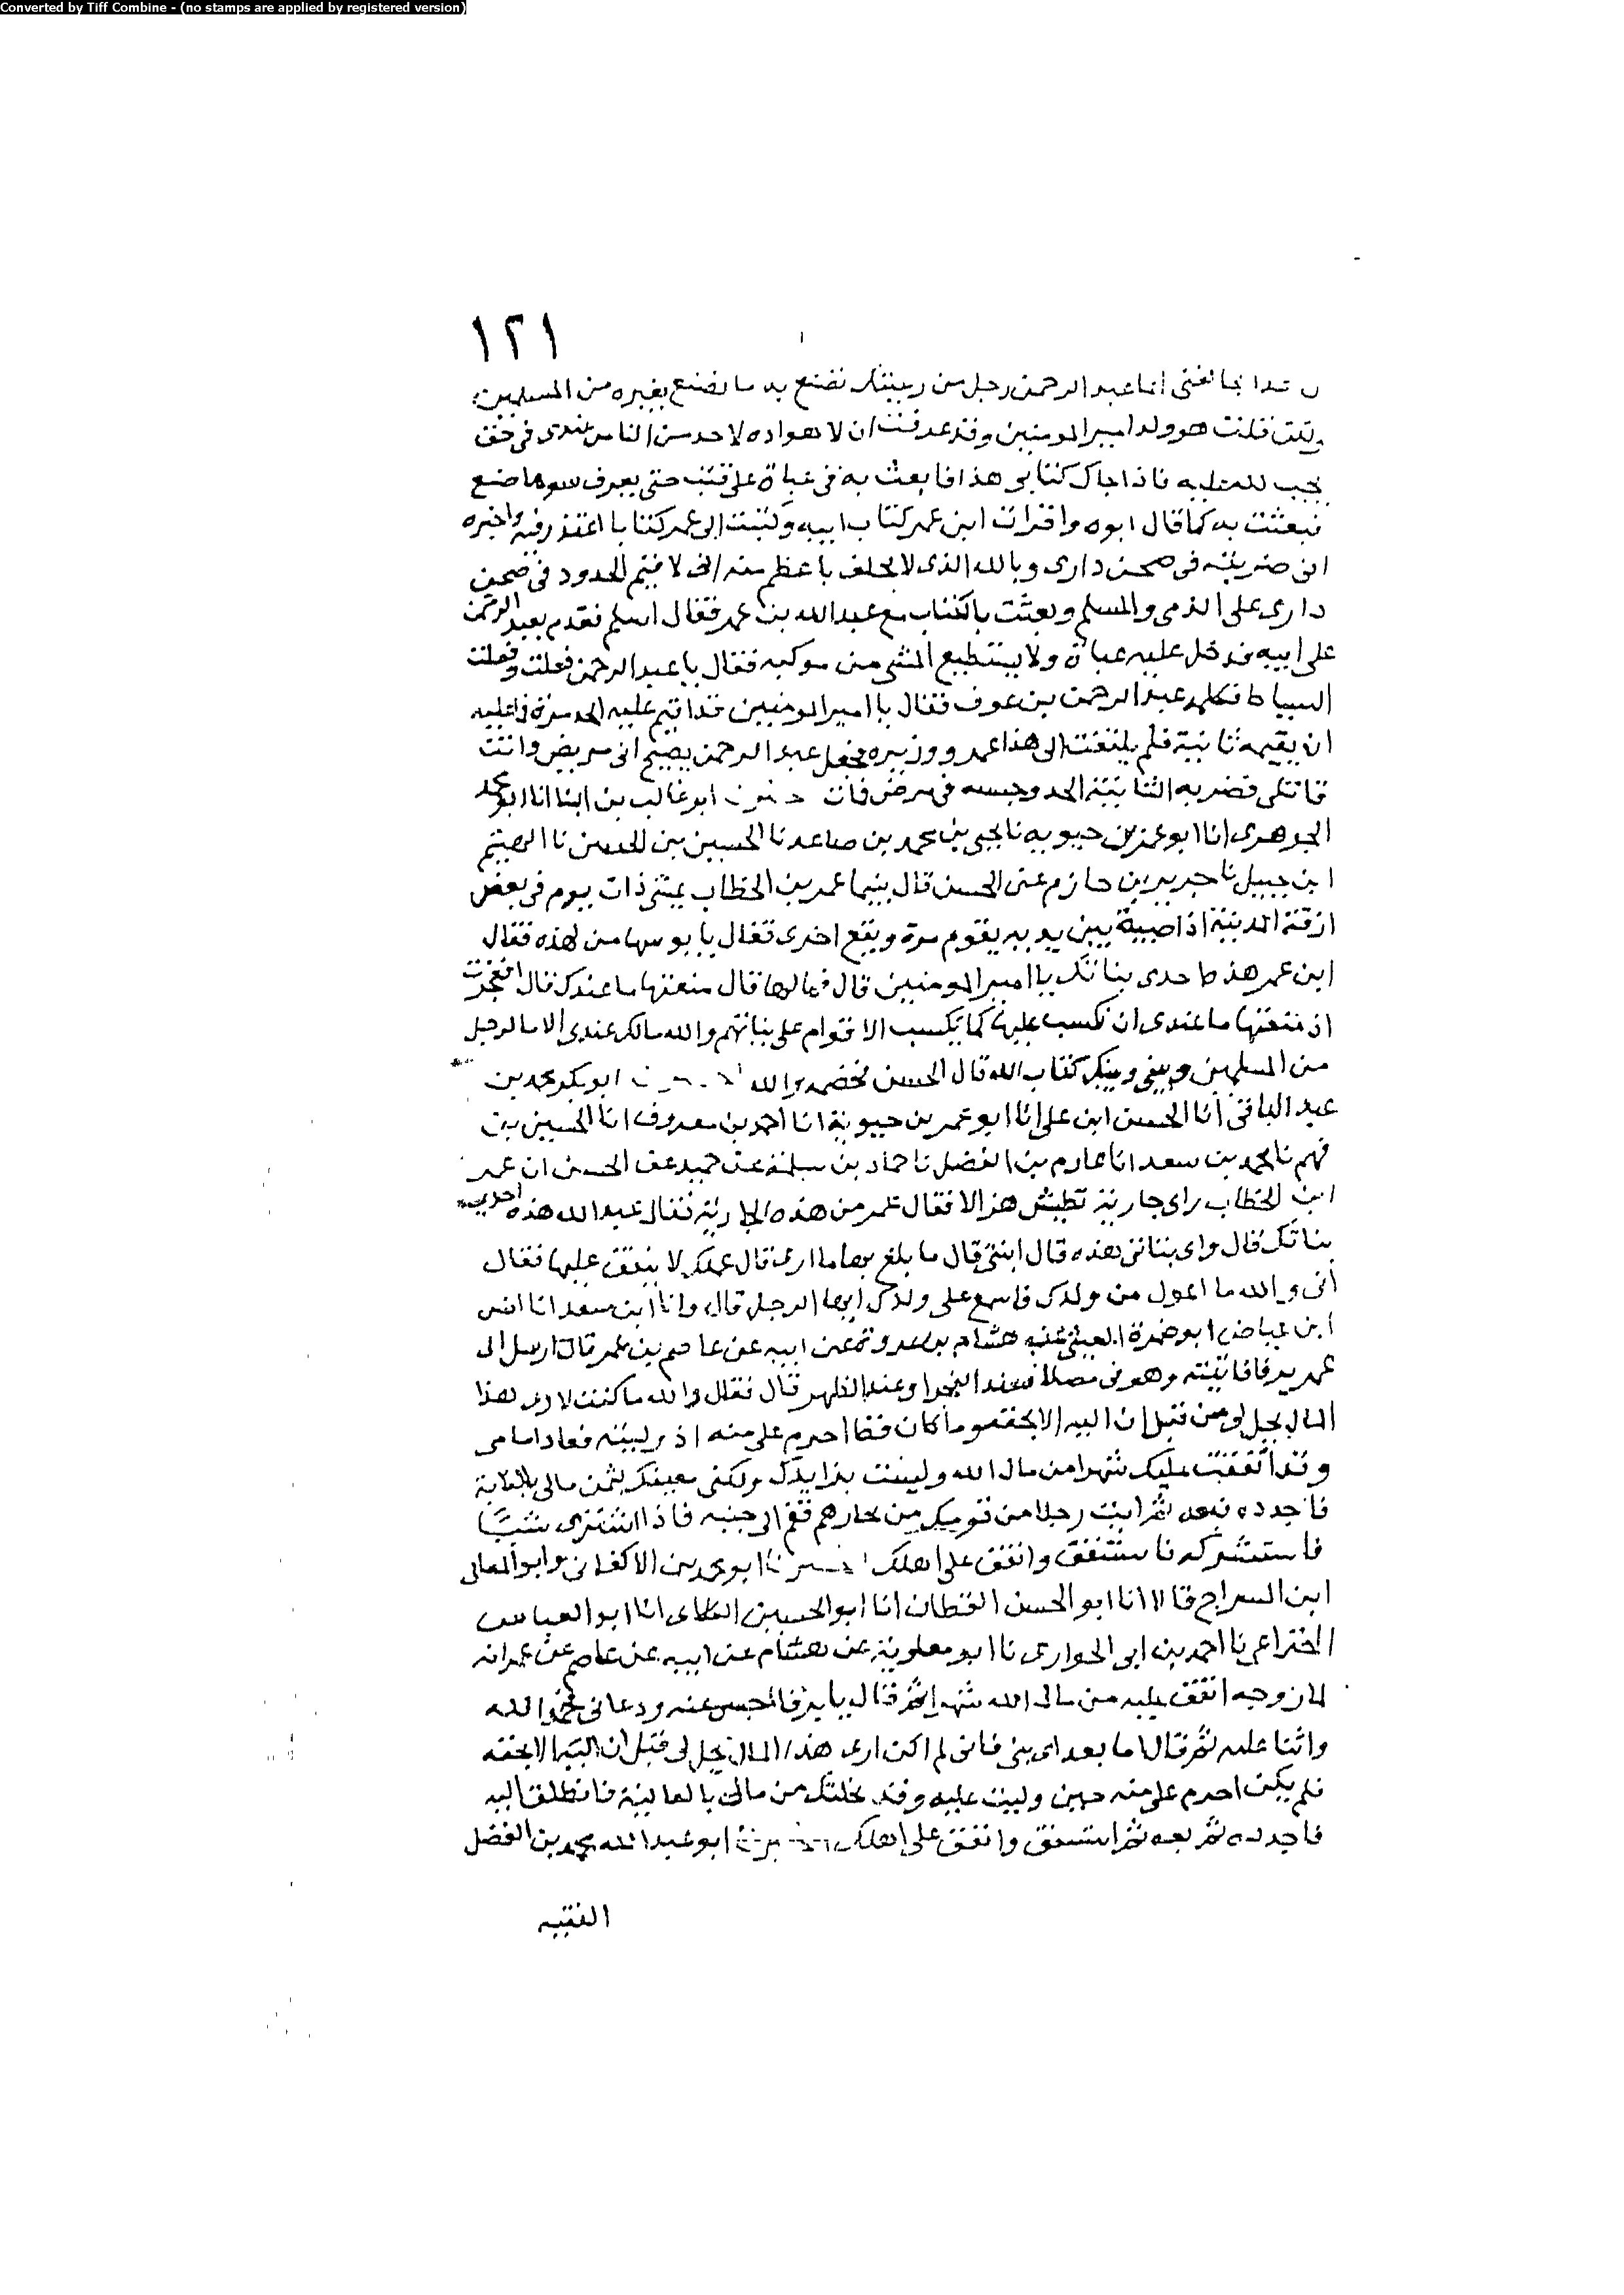 Converted by Tiff Combine - (no stamps are applied by registered version)
١٢١
انما عبد الرحمن رجل من رعيتك تصنع به ما تصنع بغيره من المسلمين
فقلت هو ولد امير المومنين وقد عرفت ان لا هواده لاحد من الناس عندى فى حق
يجب لله عليه فاذا جاك كتابى هذا فابعث به فى عباة على قتب حتى يعرف سو ما صنع
فبعثت به كما قال ابوه واقرات ابن عمر كتاب ابيه وكتبت الى عمر كتابا اعتذر فيه واخبره
انى ضربته فى صحن دارى وبالله الذى لا يحلف باعظم منه انى لاقيم الحدود فى صحن
دارى على الذمى والمسلم وبعثت بالكتاب مع عبد الله بن عمر فقال اسلم فقدم بعبد الرحمن
على ابيه فدخل عليه عباة ولا يستطيع المشى من مركبه فقال يا عبد الرحمن فعلت وفعلت
السياط فكلمه عبد الرحمن بن عوف فقال يا امير المومنين قد اقيم عليه الحد مرة فما عليه
ان يقيمه ثانية فلم يلتفت الى هذا عمر وزبره فجعل عبد الرحمن يصيح انى مريض وانت
قاتلى فضربه الثانية الحد وحبسه فمرض فمات ابو غالب بن البنا انا ابو محمد
الجوهرى انا ابو عمر بن حيويه نا يحيى بن محمد بن صاعد نا الحسين بن الحسن نا الهيثم
ابن جميل نا جرير بن حازم عن الحسن قال بينما عمر بن الخطاب يمشى ذات يوم فى بعض
ازقة المدينة اذا صبية بين يديه يقوم مرة ويقع اخرى فقال يا بوسها من لهذه فقال
ابن عمر هذه احدى بناتك يا امير المومنين قال فما لها قال منعتها ما عندك قال افعجزت
اذ منعتها ما عندى ان تكسب عليها كما يكسب الاقوام على بناتهم والله مالك عندى الا ما لرجل
من المسلمين وبينى وبينك كتاب الله قال الحسن فخصمه والله ابو بكر محمد بن
عبد الباقى انا الحسن ابن على انا ابو عمر بن حيوية انا احمد بن معروف انا الحسين بن
فهم نا محمد بن سعد انا عارم بن الفضل نا حماد بن سلمة عن حميد عن الحسن ان عمر
ابن الخطاب راى جارية تطيش هزالا فقال عمر من هذه الجارية فقال عبد الله هذه احدى
بناتك قال واى بناتى هذه قال ابنتى قال ما بلغ بها ما ارى قال عملك لا ينفق عليها فقال
انى والله ما اعول من ولدك فاسع على ولدك ايها الرجل قال وانا ابن سعد انا انس
ابن عياض ابو ضمرة الليثى عن هشام بن عروة عن ابيه عن عاصم بن عمر قال ارسل الى
عمر يرفا فاتيته وهو فى مصلاه عند الفجر او عند الظهر قال فقال والله ما كنت لارى هذا
المال يحل لى من قبل ان اليه الا بحقه وما كان قط احرم على منه اذ وليته فعاد امانتى
وقد انفقت عليك شهرا من مال الله ولست بزايدك ولكنى معينك بثمن مالى بالغابة
فاجدده فبعه ثم ايت رجلا من قومك من تجارهم فقم الى جنبه فاذا اشترى شيا
فاستشركه فاستنفق وانفق على اهلك ابو محمد بن الاكفانى وابو المعالى
ابن السراج قالا انا ابو الحسن القطان انا ابو الحسين الكلابى انا ابو العباس
الخزاعى نا احمد بن ابى الحوارى نا ابو معاوية عن هشام عن ابيه عن عاصم عن عمر انه
لما زوجه انفق عليه من مال الله شهرا ثم قال يا يرفا احبس عنه ودعانى فحمد الله
واثنا عليه ثم قال اما بعد اى بنى فانى لم اكن ارى هذا المال يحل لى قبل ان اليه الا بحقه
فلم يكن احرم على منه حين وليت عليه وقد نحلتك من مالى بالعالية فانطلق اليه
فاجدده ثم بعه ثم استنفق وانفق على اهلك ابو عبد الله محمد بن الفضل
الفقيه